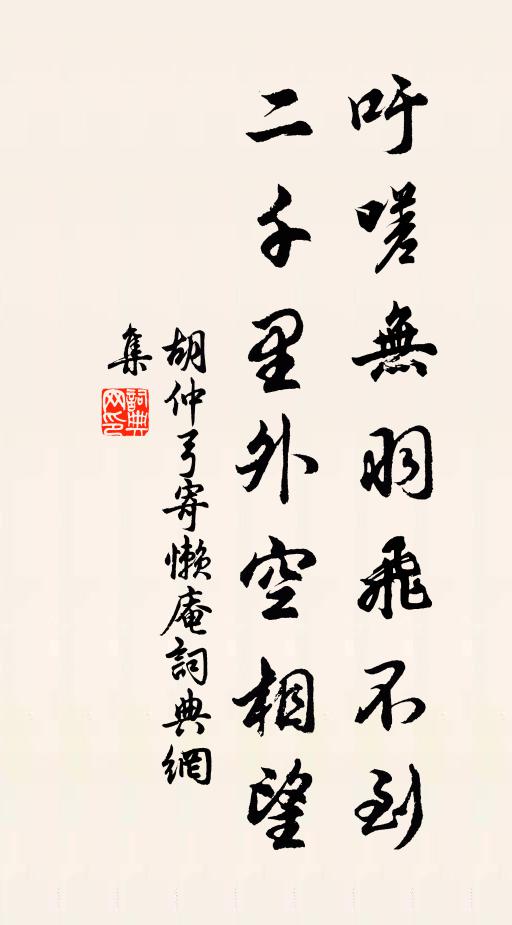 吁嗟無羽飛不到
二千里外空相望
胡仲弓寄懶庵詞典網
集
詞典网印